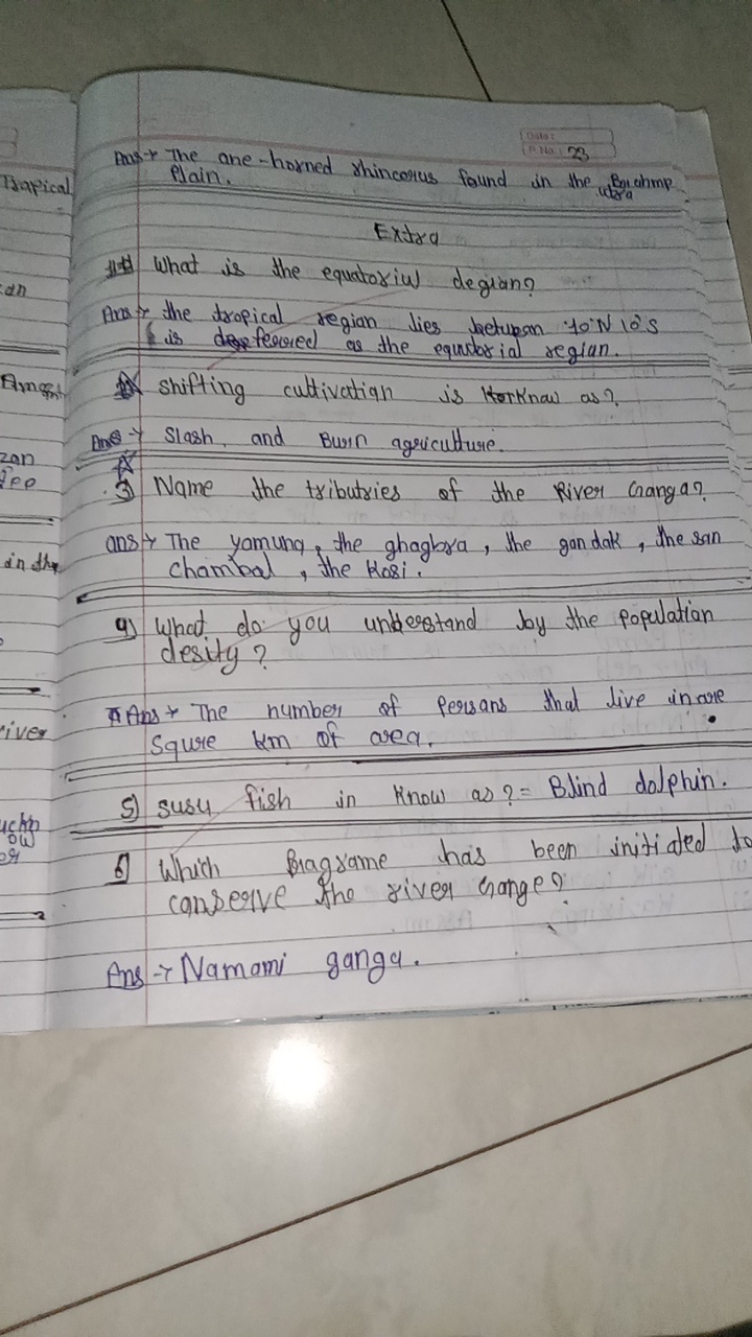 Date:
P. No. 23
Ans→ The one-horned rhincorus found in the Brahmp
utra
Plain.
Extra
What is the equatoriul degian?
Ans→ the tropical region lies between 10°N 10°S
is defeered as the equatorial region.
shifting cultivation is Know as?
Ans→ Slash and Burn agriculture.
3) Name the tributries of the River Ganga?
ans→ The yamuna, the ghaghra, the gandak, the son
chambal, the Kosi.
4) What do you understand by the Population
desity?
Ans→ The number of Persons that live in one
Squre km of area.
5) susu fish in Know as? = Blind dolphin.
6) Which Programe has been initiated to
conserve the river Gange?
Ans→ Namami ganga.
Tropical
an
zan
in the
river